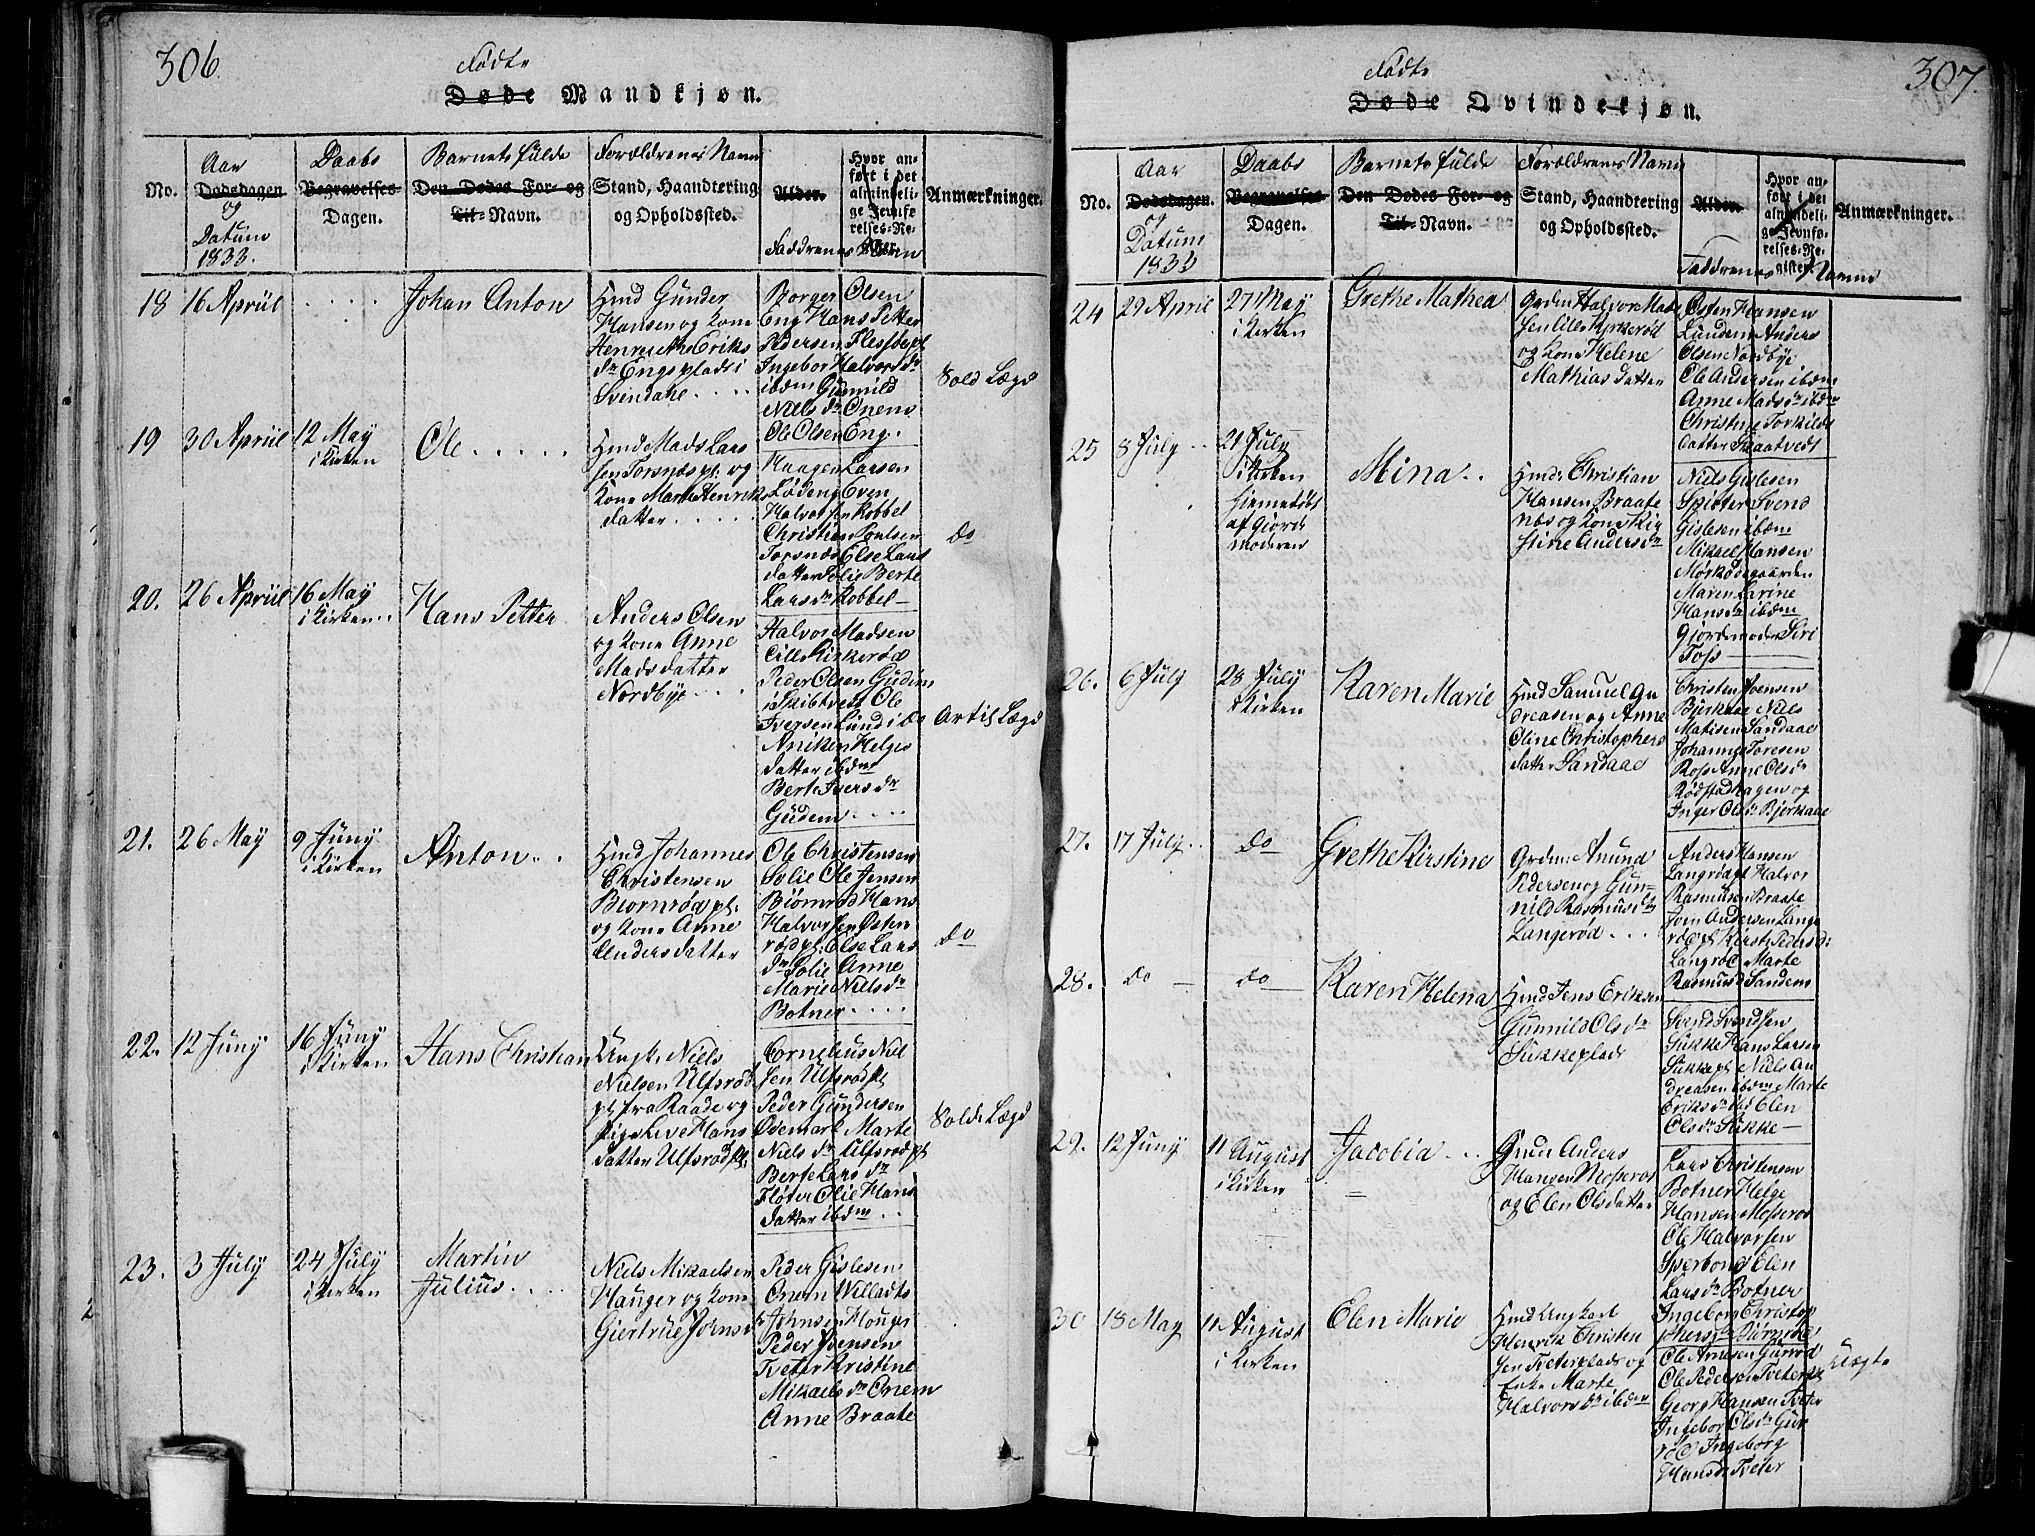 306.
Fødte
Døde Mandkjøn.
No.
Aar
Dødsdagen
og
Datum
1833.
Daabs
Begravelses-
Dagen.
Barnets fulde
Den Dødes For- og
Til-Navn.
Forældrenes Navn
Stand, Haandtering
og Opholdssted.
Alder.
Hvor an-
ført i det
almindeli-
ge Jevnfø-
relses-Re-
gister.
Faddrenes Navne
Anmærkninger.
18
16 Apriil
. . . .
Johan Anton
Hmd Gunder
Hansen og Kone
Henriethe Eriks
dr Engsplads i
Svendahl . . . .
Borger Olsen
Eng Hans Petter
Pedersen Flesse pl
Ingebor Halvorsdr
ibdm Gunnild
Nielsdr Onem
Ole Olsen Eng.
Sold Lægd
19
30 Apriil
12 May
i Kirken
Ole . . . . .
Hmd Mads Lars
sen Torsnæs pl. og
Kone Marte Henriks
datter . . . . .
Haagen Larsen
Løden Even
Halvorsen Kobbel
Christian Poulsen
Torsnæs Else Lars
datter Solie Berte
Larsdr Kobbel –
do
20.
26 Apriil
16 May
i Kirken
Hans Petter
Anders Olsen
og Kone Anne
Mads datter
Nordbye . . . .
Halvor Madsen
Lille Kirkerød
Peder Olsen Gudim
i Skibtvett Ole
Iversen Lund i do
Aniken Helges
datter ibdm
Berte Iversdr
Gudem . . . .
Artil Lægd
21.
26 May
9 Juny
i Kirken
Anton . . .
Hmd Johannes
Christensen
Biornrød pl.
og Kone Anne
Andersdatter
Ole Christensen
Solie Ole Jensen
Biørnrød Hans
Halvorsen Østen
rød pl. Else Lars
dr Solie Anne
Marie Nielsdr
Botner . . . .
do
22.
12 Juny
16 Juny
i Kirken
Hans Christian
Ungk. Niels
Nielsen Ulfsrød
pl. fra Raade og
Pige Live Hans
datter Ulfsrød pl.
Cornelius Niel
sen Ulfsrød pl
Peder Gundersen
Ødemark Marte
Nielsdr Ulfsrød pl
Berte Larsdr
Fløter Olie Hans
datter ibdm . .
Solde Lægd
23.
3 July
24 July
i Kirken
Martin
Julius . . . .
Niels Mikaelsen
Hauger og Kone
Giertrue Johnsdr
Peder Gislesen
Onem Willadts
Johnsen Houger
Peder Svensen
Tveter Kristine
Mikaelsdr Onem
Anne Braate
307.
Fødte
Døde Qvindekjøn.
No.
Aar
Dødsdagen.
og
Datum
1833
Daabs
Begravelses-
Dagen.
Barnets fulde
Den Dødes For- og
Til-Navn.
Forældrenes Navn
Stand, Haandtering
og Opholdssted.
Alder.
Hvor an-
ført i det
almindeli-
ge Jevnfø-
relses-Re-
gister.
Faddrenes Navne
Anmærkninger.
24
29 April
27 May
i Kirken
Grethe Mathea
Grdm Halvor Mad
sen Lille Kirkerød
og Kone Helene
Mathias datter
Østen Hansen
Lundem Anders
Olsen Nordbye
Ole Andersen ibdm
Anne Madsdr ibdm
Christine Torkilds
datter Skaatvedt
25
8 July . .
21 July
i Kirken
hiemedøbt
af Giorde
moderen
Mina . .
Hmd: Christian
Hansen Braate
næs og Kone Kir
stine Andersdr
Niels Gislesen
Spitter Svend
Gislesen ibdm
Mikael Hansen
Mørkødegaarden
Maren Larine
Hansdr ibdm
Gjordemoder Siri
Foss
26.
6 July
28 July
i Kirken
Karen Marie
Hmd Samuel An
dreasen og Anne
Oline Christophers
datter Sandaae
Christen Svensen
Bjerkaae Niels
Matisen Sandaae
Johannes Toresen
Ross Anne Olsdr
Rødstadhagen og
Inger Olsdr Bjørkaae
27.
17 July . .
do
Grethe Kirstine
Grdm Amund
Pedersen og Gun-
nild Rasmusdr
Langerød . . .
Anders Hansen
Langrød pl Halvor
Rasmusen Braate
Joen Andersen Lange
rød pl Kirsti Pedersd:
Langrød Marte
Rasmusd Sandem
28.
do –
do –
Karen Helena
Hmd Jens Eriksen
Gunnild Olsdr
Sukkeplads
Svend Svendsen
Sukke Hans Larsen
Sukke pl Niels An
dreasen ibdm Marte
Eriksdr ibd Elen
Olsdr Sukke –
29.
12 Juny
11 August
i Kirken
Jacobia . . .
Hmd Anders
Hansen Mosserød
og Elen Olsdatter
Lars Christensen
Botner Helge
Hansen Mosserød
Ole Halvorsen
Sperbond Elen
Larsdr Botner
Ingeborg Christop
hersdr Biørnrød
30
18 May
11 August
i Kirken
Elen Marie
Hmd Ungkarl
Henrik Christen
sen Tveterplads og
Enke Marte
Halvorsdr ibdm
Ole Arnesen Gurrød
Ole Pedersen Tveter pl
Georg Hansen Tveter
Ingebor Olsdr Gur
rød Ingeborg
Hansdr Tveter
Uægte